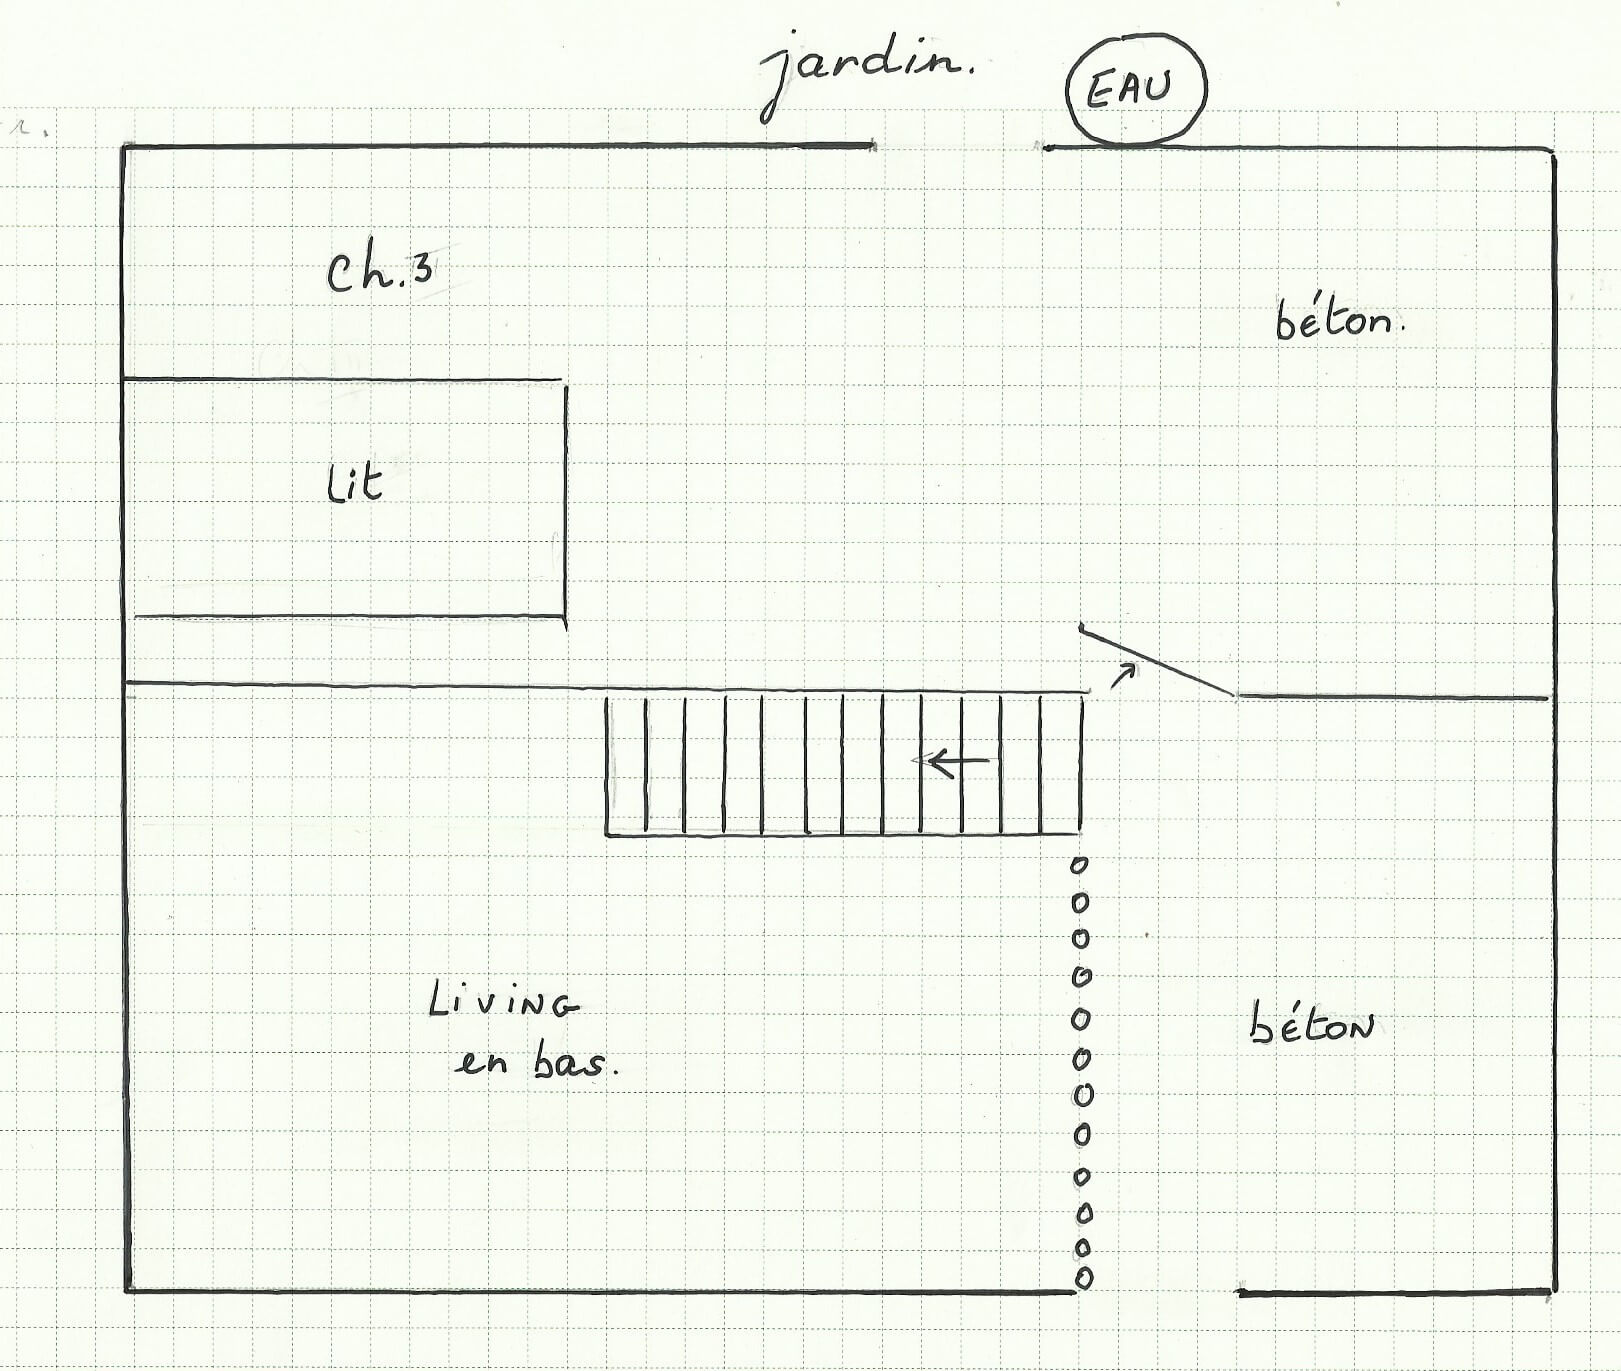 jardin.
EAU
Ch.3
béton.
Lit
Living
en bas.
béton